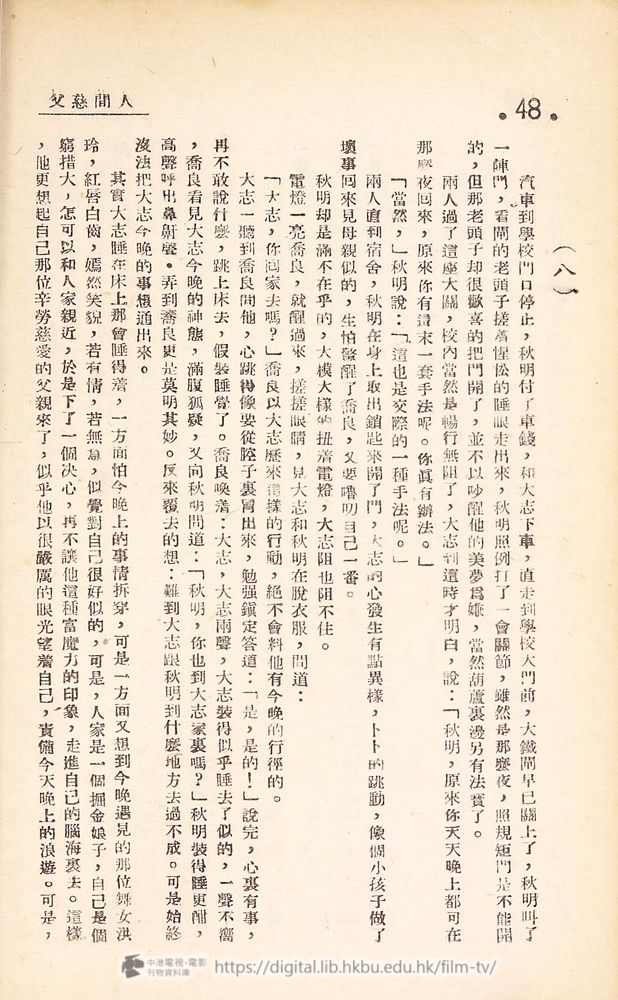 人間慈父
•48•
(八)
汽車到學校門口停止，秋明付了車錢，和大志下車，直走到學校大門前，大鐵閘早已關上了，秋明叫了
一陣門，看閘的老頭子搓着惺忪的睡眼走出來，秋明照例打了一會關節，雖然是那麼夜，照規矩門是不能開
的，但那老頭子却很歡喜的把門開了，並不以吵醒他的美夢爲嫌，當然葫蘆裏邊另有法寶了。
兩人過了這座大關，校內當然是暢行無阻了，大志到這時才明白，說：「秋明，原來你天天晚上都可在
那麼夜回來，原來你有這末一套手法呢。你眞有辦法。」
「當然，」秋明說：「這也是交際的一種手法呢。」
兩人直到宿舍，秋明在身上取出鎖匙來開了門，大志的心發生有點異樣，卜卜的跳動，像個小孩子做了
壞事回來見母親似的，生怕驚醒了喬良，又要嘈叨自己一番。
秋明却是滿不在乎的，大模大樣的扭着電燈，大志阻也阻不住。
電燈一亮喬良，就醒過來，搓搓眼睛，見大志和秋明在脫衣服，問道：
「大志，你回家去嗎？」喬良以大志歷來這樣的行動，絕不會料他有今晚的行徑的。
大志一聽到喬良問他，心跳得像要從腔子裏冒出來，勉强鎭定答道：「是，是的！」說完，心裏有事，
再不敢說什麼，跳上床去，假裝睡覺了。喬良喚着：大志，大志兩聲，大志裝得似乎睡去了似的，一聲不響
，喬良看見大志今晚的神態，滿腹狐疑，又向秋明問道：「秋明，你也到大志家裏嗎？」秋明裝得睡更酣，
高聲呼出鼻鼾聲。弄到喬良更是莫明其妙。反來覆去的想：難到大志跟秋明到什麼地方去過不成。可是始終
沒法把大志今晚的事想通出來。
其實大志睡在床上那會睡得着，一方面怕今晚上的事情拆穿，可是一方面又想到今晚遇見的那位舞女洪
玲，紅唇白齒，嫣然笑貌，若有情，若無意，似覺對自己很好似的，可是，人家是一個掘金娘子，自己是個
窮措大，怎可以和人家親近，於是下了一個决心，再不讓他這種富魔力的印象，走進自己的腦海裏去。這樣
，他更想起自己那位辛勞慈愛的父親來了，似乎他以很嚴厲的眼光望着自己，責備今天晚上的浪遊。可是，
中港電視・電影
刊物資料庫
https://digital.lib.hkbu.edu.hk/film-tv/